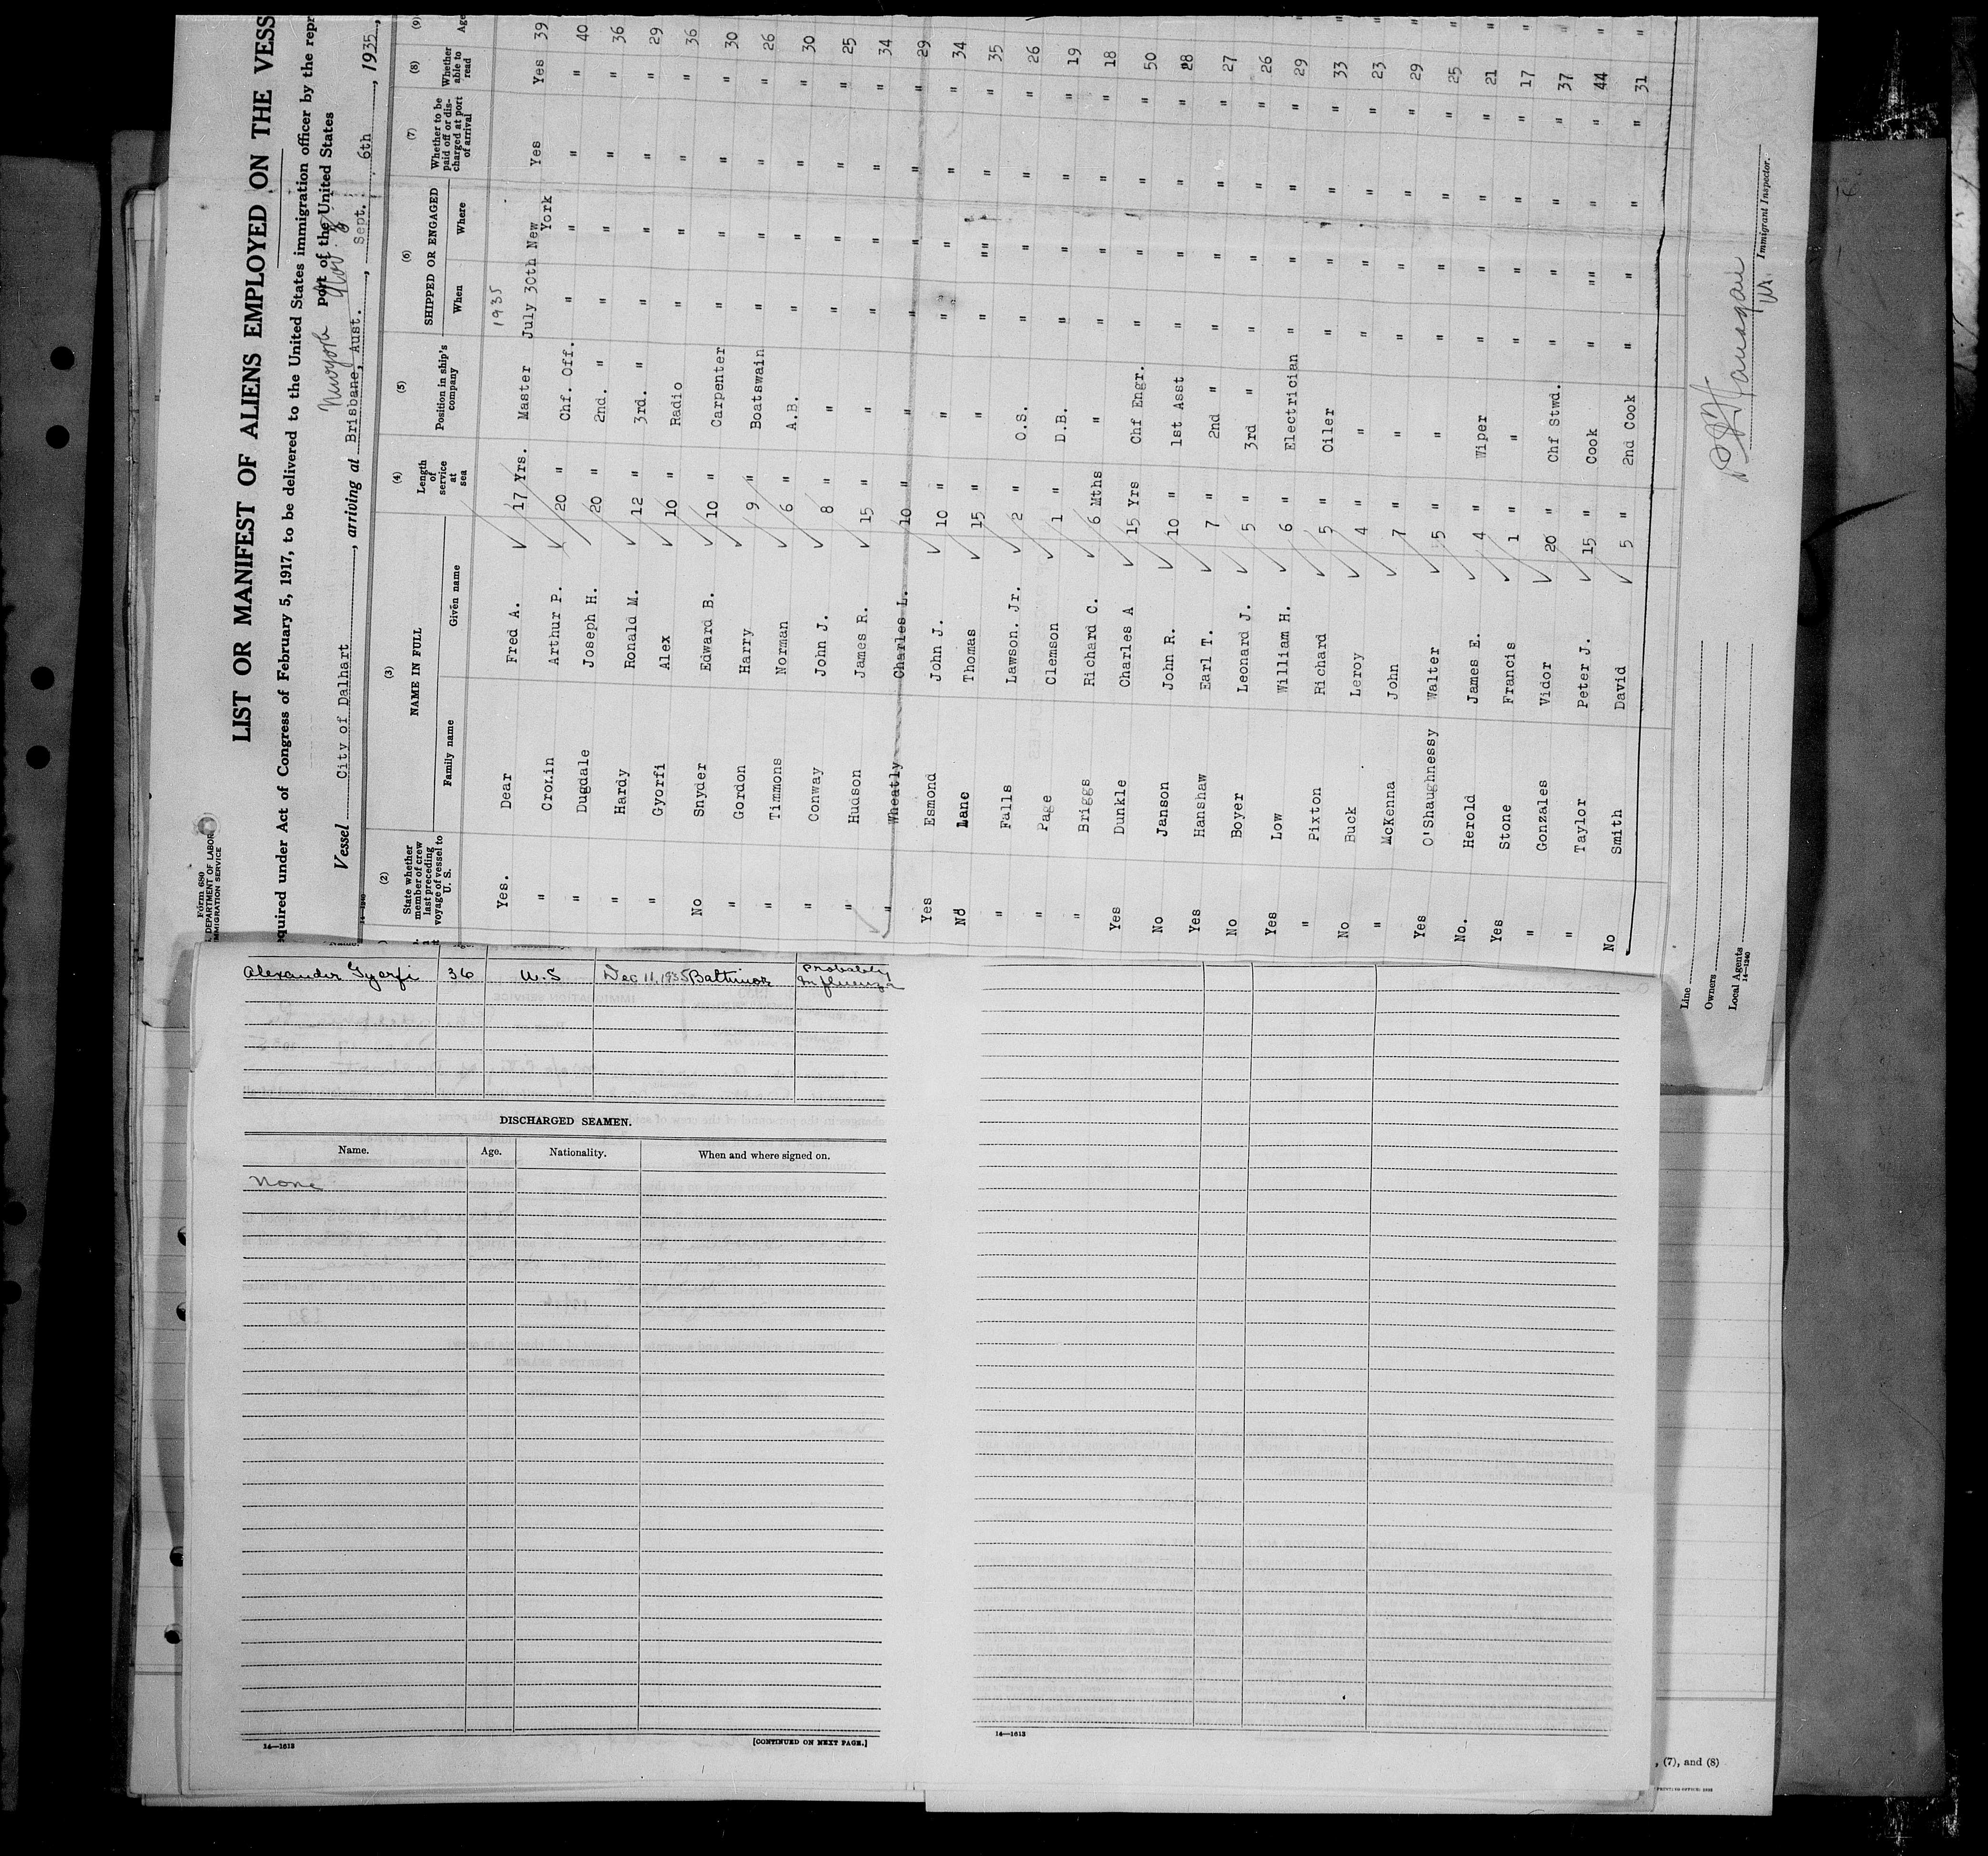 Form 680
DEPARTMENT OF LABOR
IMMIGRATION SERVICE
LIST OR MANIFEST OF ALIENS EMPLOYED ON THE VESS
equired under Act of Congress of February 5, 1917, to be delivered to the United States immigration officer by the repr
port of the United States
Vessel City of Dalhart, arriving at Brisbane, Aust., Sept. 6th, 1935,
14—1240
(2) (3) (4) (5) (6) (7) (8) (9)
State whether member of crew last preceding voyage of vessel to U. S.
NAME IN FULL
Family name Given name
Length of service at sea
Position in ship's company
SHIPPED OR ENGAGED
When Where
Whether to be paid off or discharged at port of arrival
Whether able to read
Age
1935
Yes. Dear Fred A. 17 Yrs. Master July 30th New York Yes Yes 39
" Cronin Arthur P. 20 " Chf. Off. " " " " 40
" Dugdale Joseph H. 20 " 2nd. " " " " " 36
" Hardy Ronald M. 12 " 3rd. " " " " " 29
" Gyorfi Alex 10 " Radio " " " " 36
No Snyder Edward B. 10 " Carpenter " " " " 30
" Gordon Harry 9 " Boatswain " " " " 26
" Timmons Norman 6 " A.B. " " " " 30
" Conway John J. 8 " " " " " " 25
" Hudson James R. 15 " " " " " " 34
" Wheatly Charles L. 10 " " " " " " 29
Yes Esmond John J. 10 " " " " " " 34
No Lane Thomas 15 " " " " " " 35
" Falls Lawson. Jr. 2 " O.S. " " " " 26
" Page Clemson 1 " D.B. " " " " 19
" Briggs Richard C. 6 Mths " " " " " 18
Yes Dunkle Charles A 15 Yrs Chf Engr. " " " " 50
No Janson John R. 10 " 1st Asst " " " " 28
Yes Hanshaw Earl T. 7 " 2nd " " " " " 27
No Boyer Leonard J. 5 " 3rd " " " " " 26
Yes Low William H. 6 " Electrician " " " " 29
" Pixton Richard 5 " Oiler " " " " 33
No Buck Leroy 4 " " " " " " 23
" McKenna John 7 " " " " " " 29
Yes O'Shaughnessy Walter 5 " " " " " " 25
No. Herold James E. 4 " Wiper " " " " 21
Yes Stone Francis 1 " " " " " " 17
" Gonzales Vidor 20 " Chf Stwd. " " " " 37
" Taylor Peter J. 15 " Cook " " " " 44
No Smith David 5 " 2nd Cook " " " " 31
Line
Owners
Local Agents
14—1240
Immigrant Inspector.
Alexander Gyorfi 36 U.S Dec 11, 1935 Baltimor probably Influenza
DISCHARGED SEAMEN.
Name. Age. Nationality. When and where signed on.
None
14—1613 [CONTINUED ON NEXT PAGE.]
14—1613
, (7), and (8)